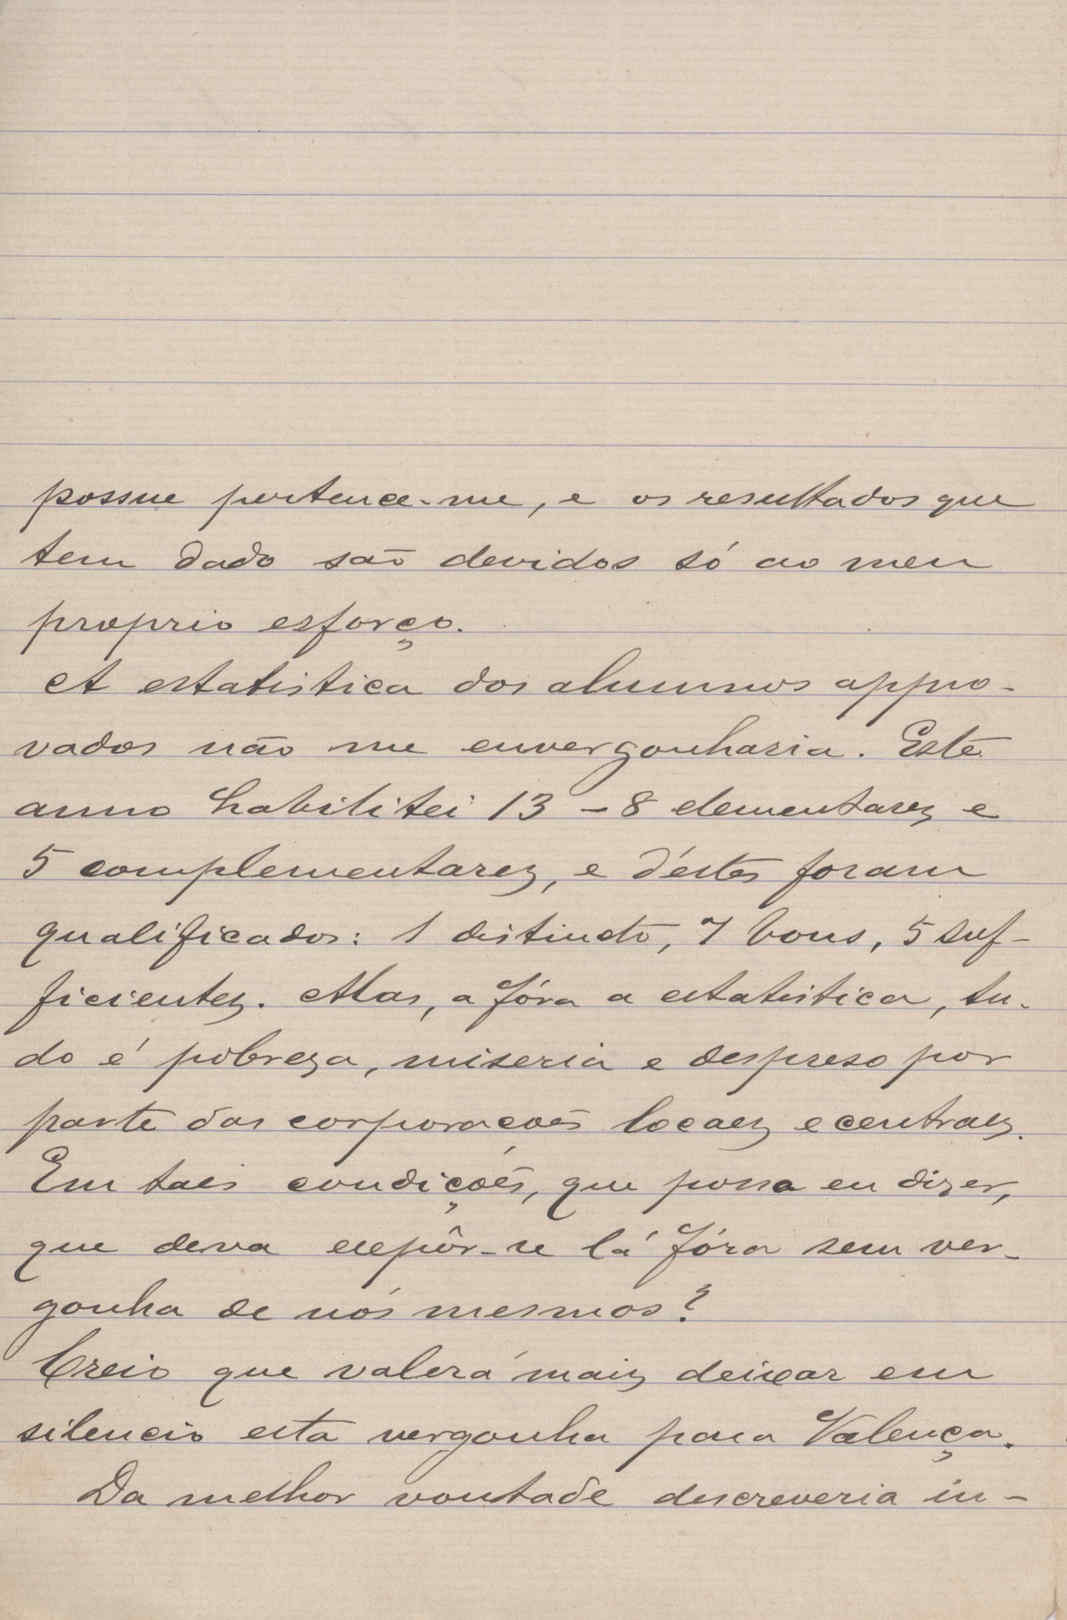 possue pertence-me, e os resultados que
tem dado são devidos só ao meu
proprio esforço.
A estatistica dos alumnos appro-
vados não me envergonharia. Este
anno habilitei 13 – 8 elementares e
5 complementares, e d'éstes foram
qualificados: 1 distincto, 7 bons, 5 suf-
ficientes. Mas, a fóra a estatistica, tu-
do é pobreza, miseria e despreso por
parte das corporações locaes e centraes.
Em taes condições, que possa eu dizer,
que deva expôr-se lá fóra sem ver-
gonha de nós mesmos?
Creio que valerá mais deixar em
silencio esta vergonha para Valença.
Da melhor vontade descreveria in-